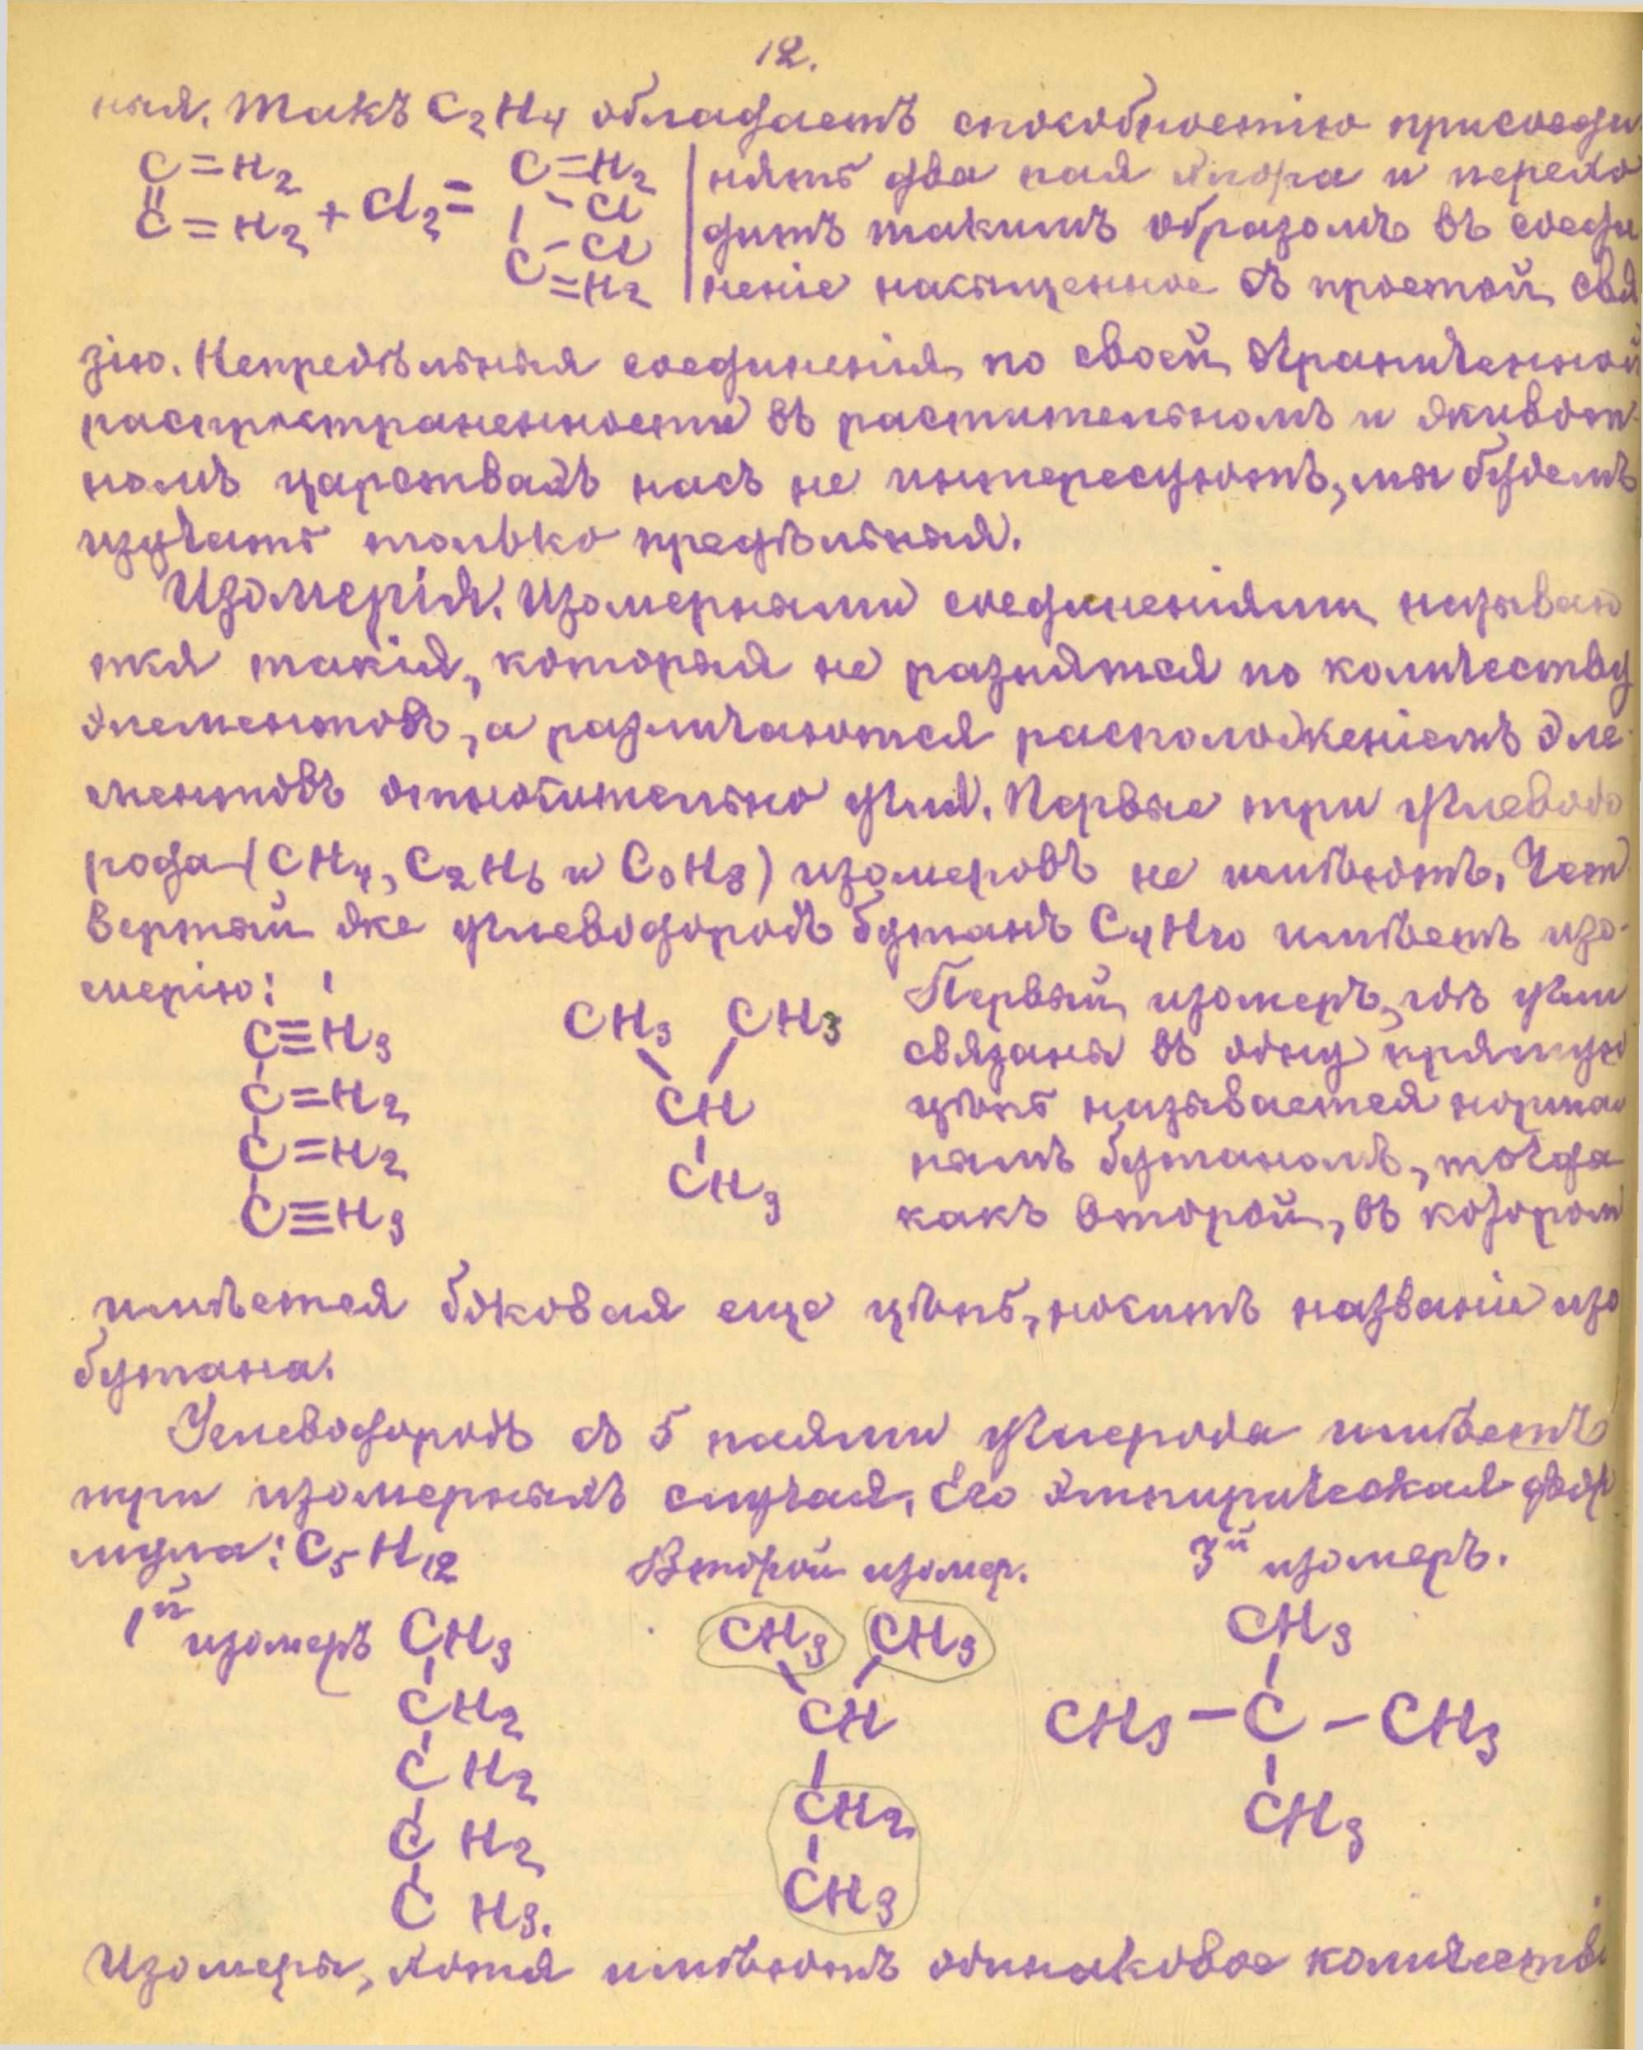 12.
ныя. Такъ C2H4 обладаетъ способностію присоеди
C=H2
C=H2 + Cl2 =
C=H2
-Cl
-Cl
C
=H2
нять два пая хлора и перехо
дитъ такимъ образомъ въ соеди
неніе насыщенное съ простой свя
зію. Непредѣльныя соединенія, по своей ограниченной
распространенности въ растительномъ и живот
номъ царствахъ насъ не интересуютъ, мы будемъ
изучать только предѣльныя.
Изомерія. Изомерными соединеніями называю
тся такія, которыя не разнятся по количеству
элементовъ, а различаются расположеніемъ эле
ментовъ относительно угля. Первые три углеводо
рода (CH4, C2H6 и C3H8) изомеровъ не имѣютъ. Чет
вертый же углеводородъ бутанъ C4H10 имѣетъ изо-
мерію:
C≡H3
C=H2
C=H2
C≡H3
CH3 CH3
CH
CH3
Первый изомеръ, гдѣ угли
связаны въ одну прямую
цѣпь называется нормал
нымъ бутаномъ, тогда
какъ второй, въ котором
имѣется боковая еще цѣпь, носитъ названіе изо
бутана.
Углеводородъ съ 5 паями углерода имѣетъ
три изомерныхъ случая. Его эмпирическая фор
мула: C5H12
1й изомеръ
CH3
CH2
CH2
CH2
CH3.
Второй изомер.
CH3 CH3
CH
CH2
CH3
3й изомеръ.
CH3
CH3-C-CH3
CH3
Изомеры, хотя имѣютъ одинаковое количество